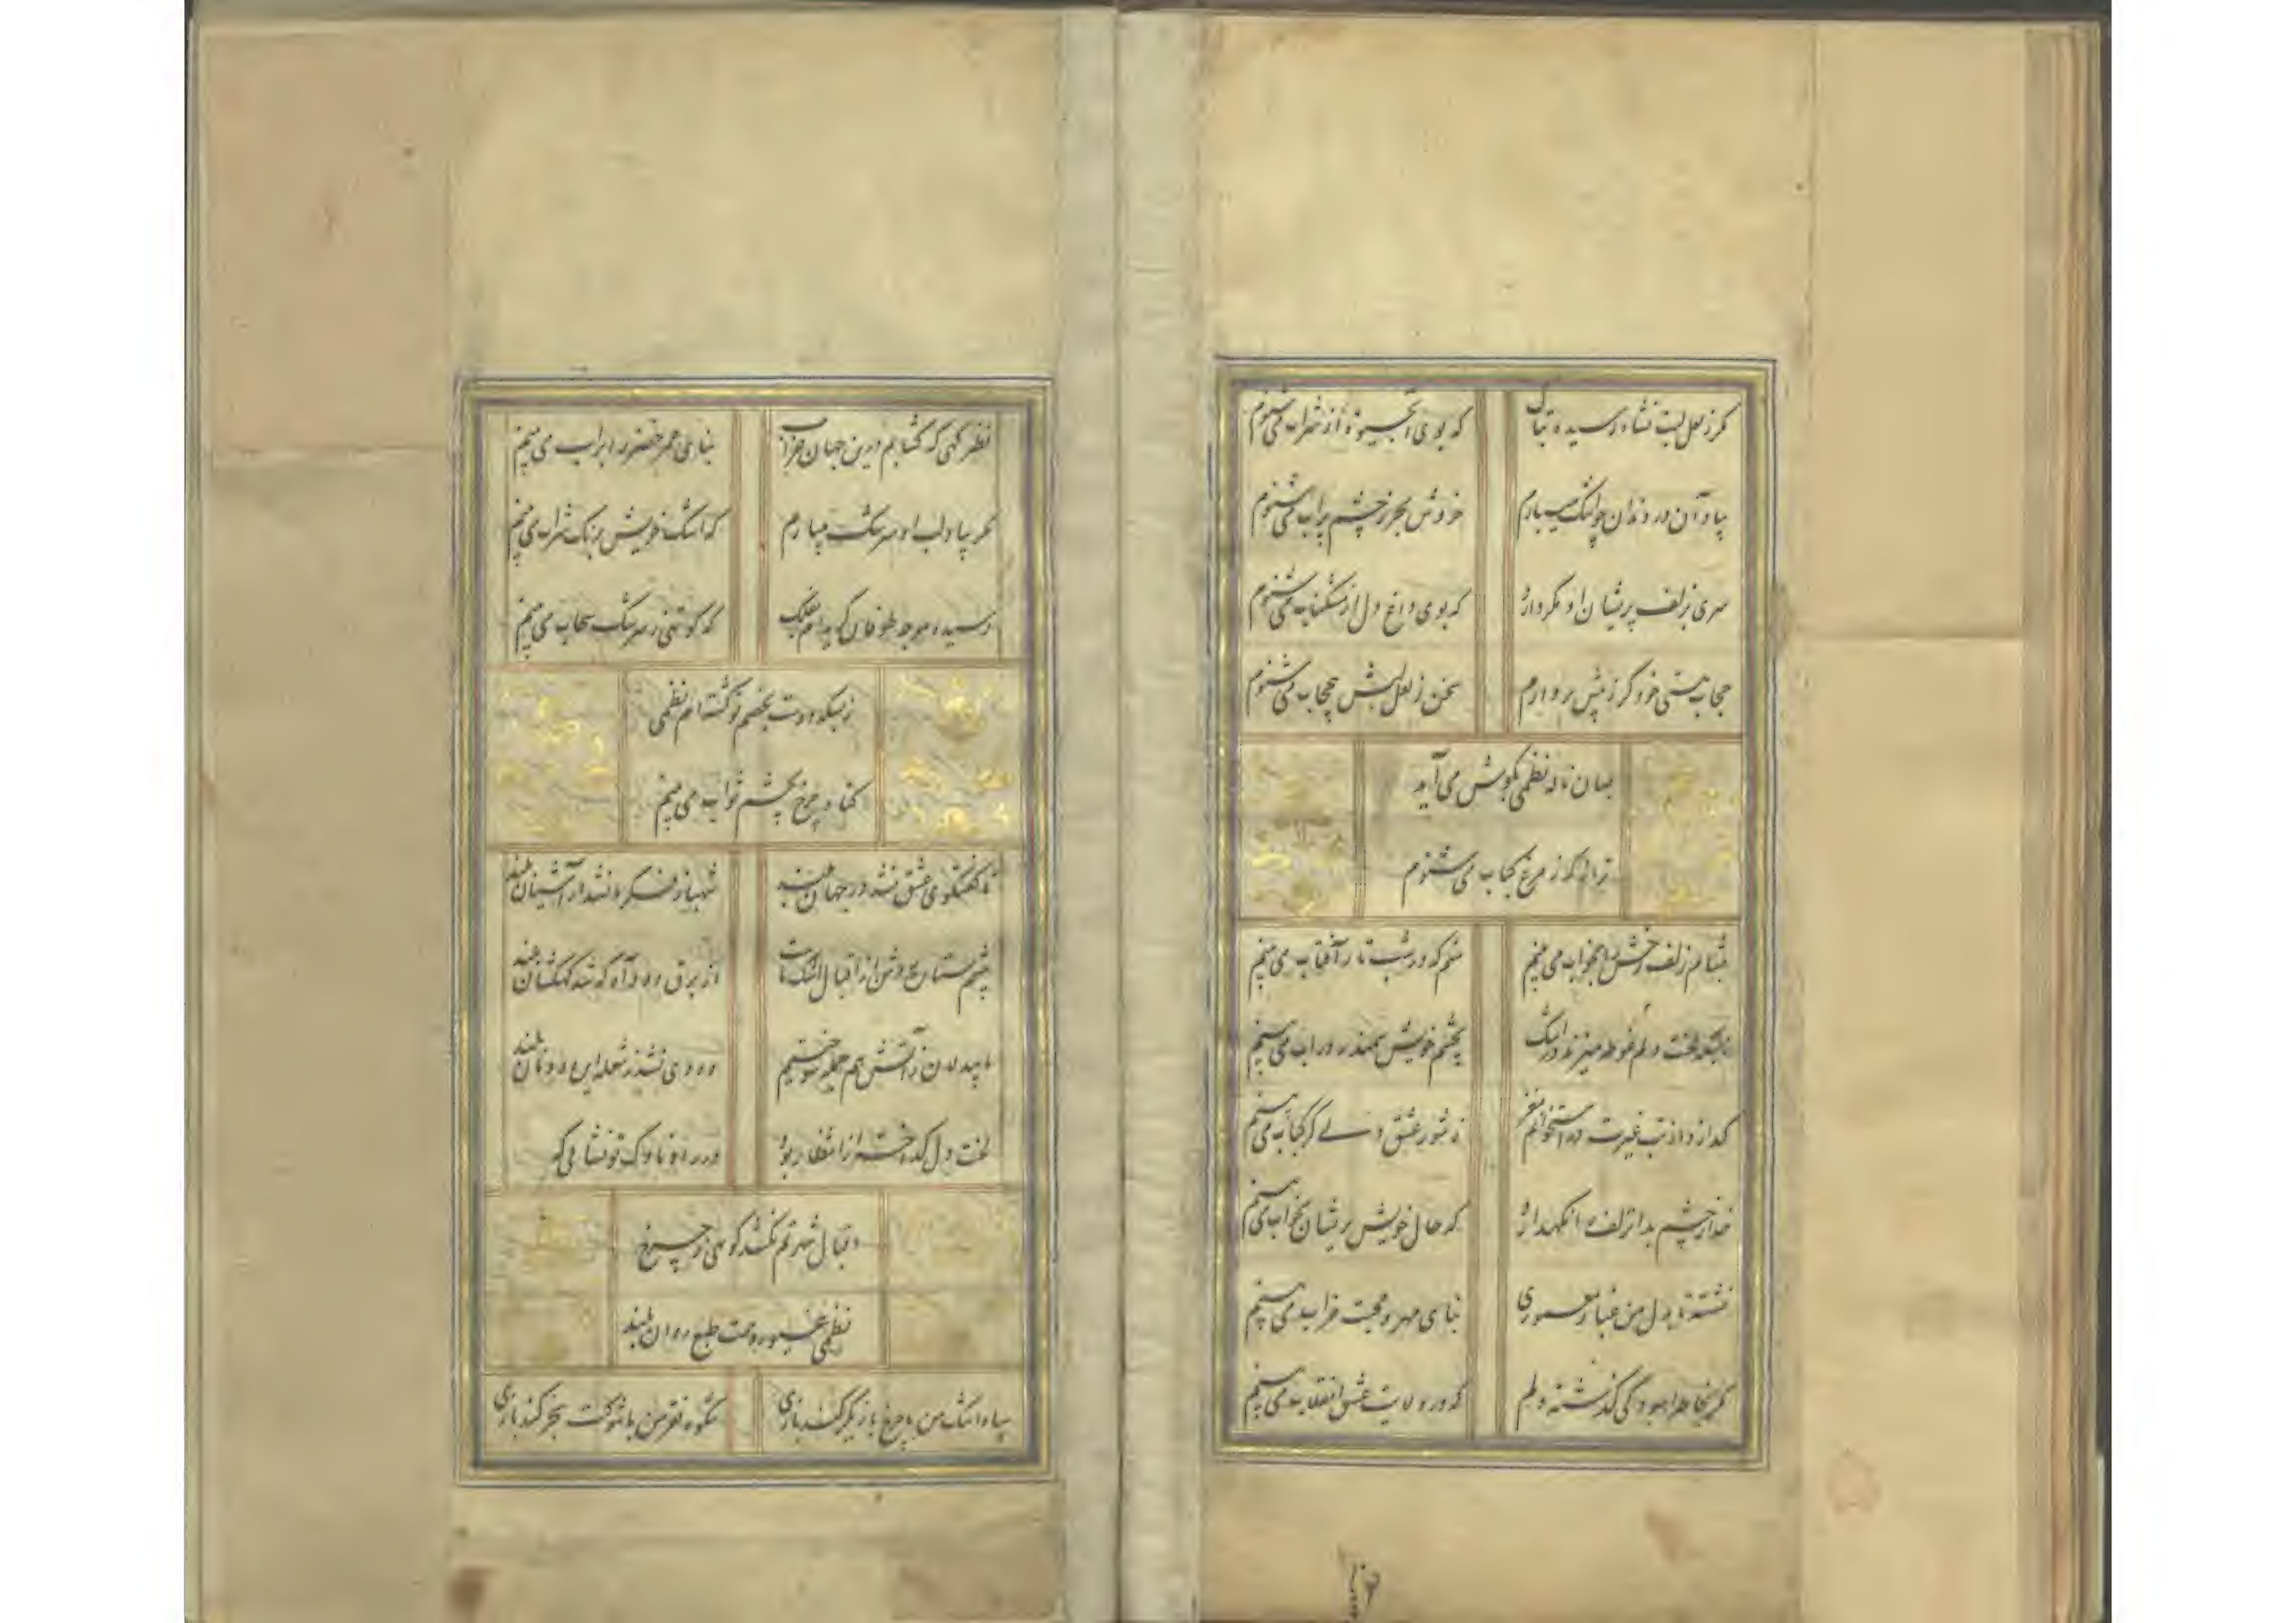 مگر ز لعل لبت نشاء رسیده بتاک که بوی آبحیوة از شراب میشنوم
بیاد آن در دندان چو اشک میبارم خروش بحر ز چشم پرآب میشنوم
سری بزلف پریشان او مگر دارد که بوی داغ دل از مشکناب میشنوم
حجاب هستی خود گر ز پیش بردارم سخن ز لعل لبش بیحجاب میشنوم
بسان ناله نظمی بگوش می آید
ترانه که ز مرغ کباب می شنوم
زلف رخش بخواب می بینم منم که در شب تار آفتاب می بینم
لخت دلم غوطه میزند در اشک بچشم خویش سمندر در آب می بینم
گدازد از تب غیرت در استخوانم مغز ز شور عشق دلی گر کباب می بینم
خدا ز چشم بد آنزلف را نگهدارد که حال خویش پریشان بخواب می بینم
نشسته تا بدل من غبار معموری بنای مهر و محبت خراب می بینم
مگر بخاطر گذشته دلم که در ولایت عشق انقلاب می بینم
نظر گهی که گشایم درین جهان خراب بنای عمر خضر را بر آب می بینم
مگر بیاد لب او سرشک میبارم که اشک خویش برنگ شراب می بینم
رسیده موجه طوفان بفلک که کوتهی ز سرشک سحاب می بینم
ز بسکه دوست بخصم تو گشته ام نظمی
گناه چرخ بچشم ثواب می بینم
تا گفتگوی عشق نشد در جهان بلند شهباز فکر ما نشد از آشیان بلند
چشم ستاره روشن از اقبال اشک ماست از برق دود آه که شد کهکشان بلند
ما بیدلان ز آتش هم جمله سوختیم دودی نشد ز شعله این دودمان بلند
لخت دل گداخته از انتظار بود در راه ناوک تو نشا
اقبال شهرتم نکشد کوتهی ز چرخ
نظمی طبع روان بلند
سپاه اشک من با چرخ بازیگر کند بازی شکوه فقر من با شوکت سنجر کند بازی